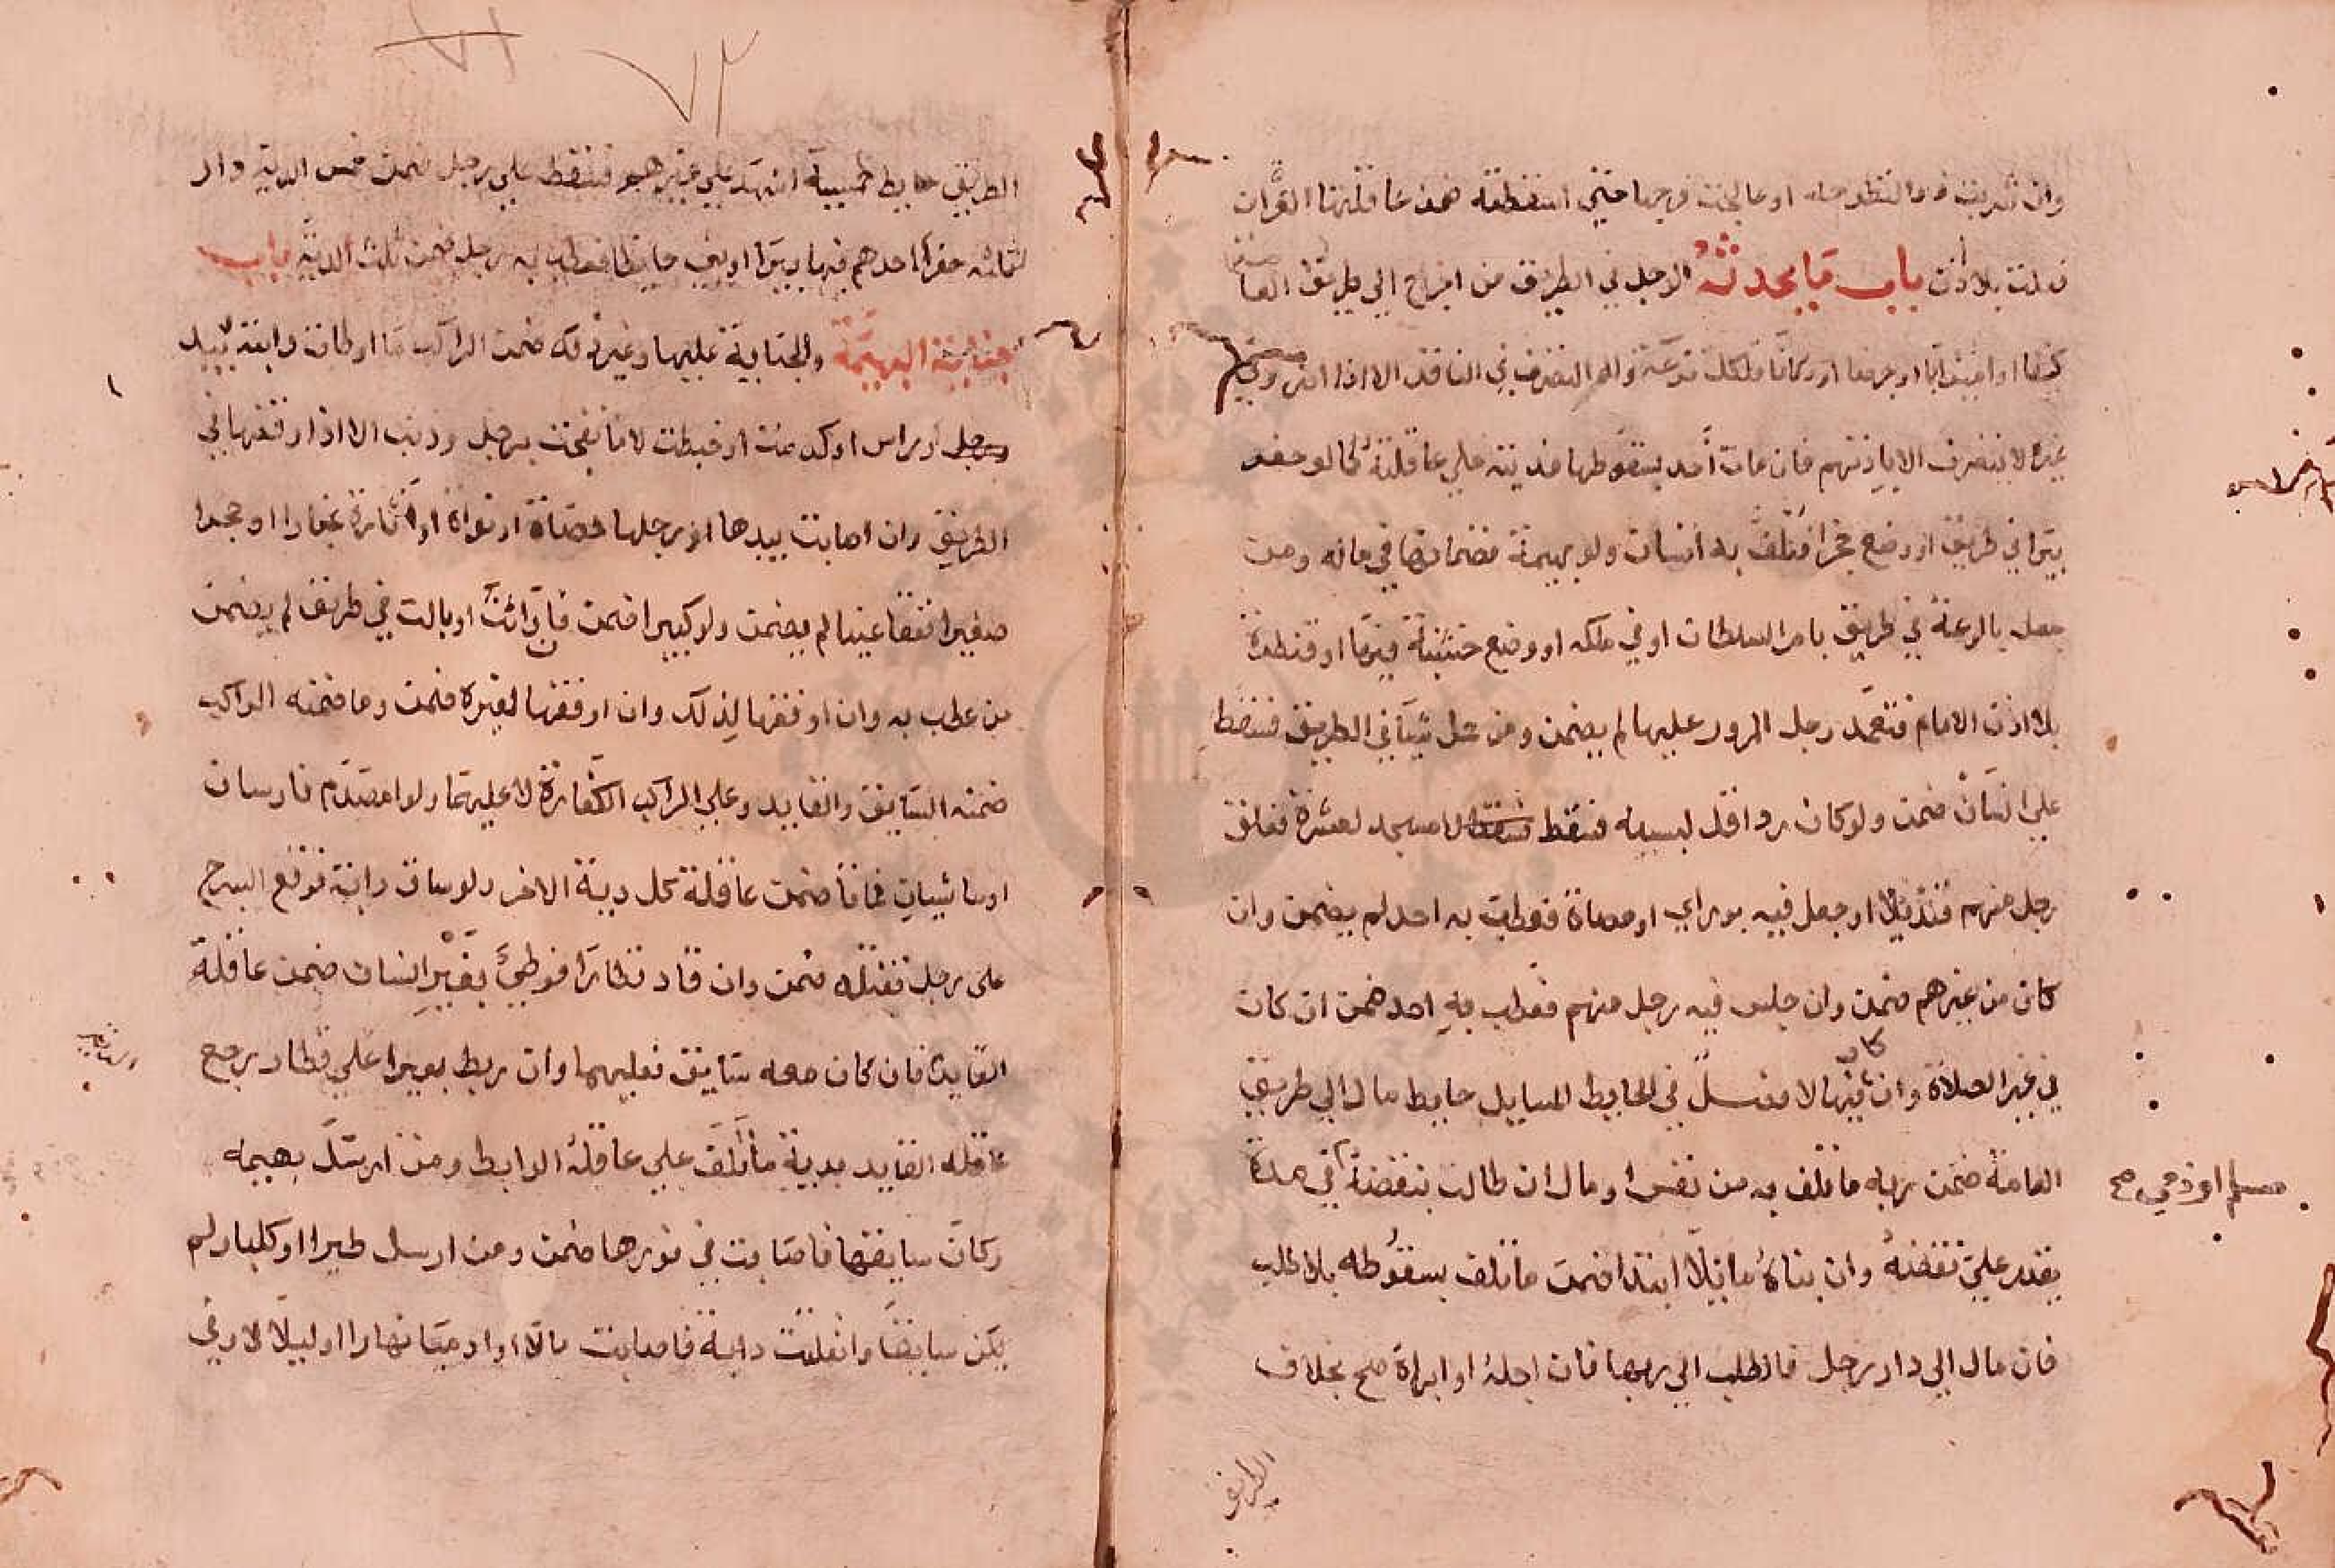 وان شربت دوا لتطرحه او عالجت فرجها حتي اسقطته ضمن عاقلتها الغرة ان
فعلت بلا اذن باب ما يحدثه الرجل في الطريق من اخرج الي طريق العامة
كنيفا او ميزابا او جرصنا او دكانا فلكل نزعه وله التصرف في النافذ الا اذا اضر وفي
غيره لا يتصرف الا باذنهم فان مات احد بسقوطها فديته علي عاقلته كما لو حفر
بيرا في طريق او وضع حجرا فتلف به انسان ولو بهيمة فضمانها في ماله ومن
جعل بالوعة في طريق بامر السلطان او في ملكه او وضع خشبة فيها او قنطرة
بلا اذن الامام فتعمد رجل المرور عليها لم يضمن ومن حمل شيئا في الطريق فسقط
علي انسان ضمن ولو كان رداء قد لبسه فسقط لا مسجد لعشيرة فعلق
رجل منهم قنديلا او جعل فيه بواري او حصاة فعطب به احد لم يضمن وان
كان من غيرهم ضمن وان جلس فيه رجل منهم فعطب به احد ضمن ان كان
في غير الصلاة وان كان فيها لا فصل في الحايط المايل حايط مال الي طريق
العامة ضمن ربه ما تلف به من نفس او مال ان طالب بنقضه في مدة
مسلم او ذمي صح
يقدر علي نقضه وان بناه مايلا ابتدا ضمن ما تلف بسقوطه بلا طلب
فان مال الي دار رجل فالطلب الي ربها فان اجله او ابراه صح بخلاف
الطريق
٧٢
الطريق حايط لخمسة اشهد علي غيرهم فسقط علي رجل ضمن خمس الدية دار
لثلاثه حفر احدهم فيها بيرا او بني حايطا فعطب به رجل ضمن ثلث الدية باب
جناية البهيمة والجناية عليها وغير ذلك ضمن الراكب ما اوطات دابته بيد
ورجل او راس او كدمت او خبطت لا ما نفحت برجل وذنب الا اذا اوقفها في
الطريق وان اصابت بيدها او رجلها حصاة او نواة او اثارت غبارا او حجرا
صغيرا ففقا عينا لم يضمن ولو كبيرا ضمن فان راثت او بالت في طريق لم يضمن
من عطب به وان اوقفها لذلك وان اوقفها لغيره ضمن وما ضمنه الراكب
ضمنه السايق والقايد وعلي الراكب الكفارة لا عليهما ولو اصطدم فارسان
او ماشيان فماتا ضمن عاقلة كل دية الاخر ولو ساق دابة فوقع السرج
علي رجل فقتله ضمن وان قاد قطارا فوطي بعير انسان ضمن عاقلة
القايد فان كان معه سايق فعليهما وان ربط بعيرا علي قطار رجع
عاقله القايد بدية ما تلف علي عاقلة الرابط ومن ارسل بهيمه
وكان سايقها فاصابت في فورها ضمن ومن ارسل طيرا او كلبا ولم
يكن سايقا وانفلتت دابة فاصابت مالا او ادميا نهارا او ليلا لا وفي